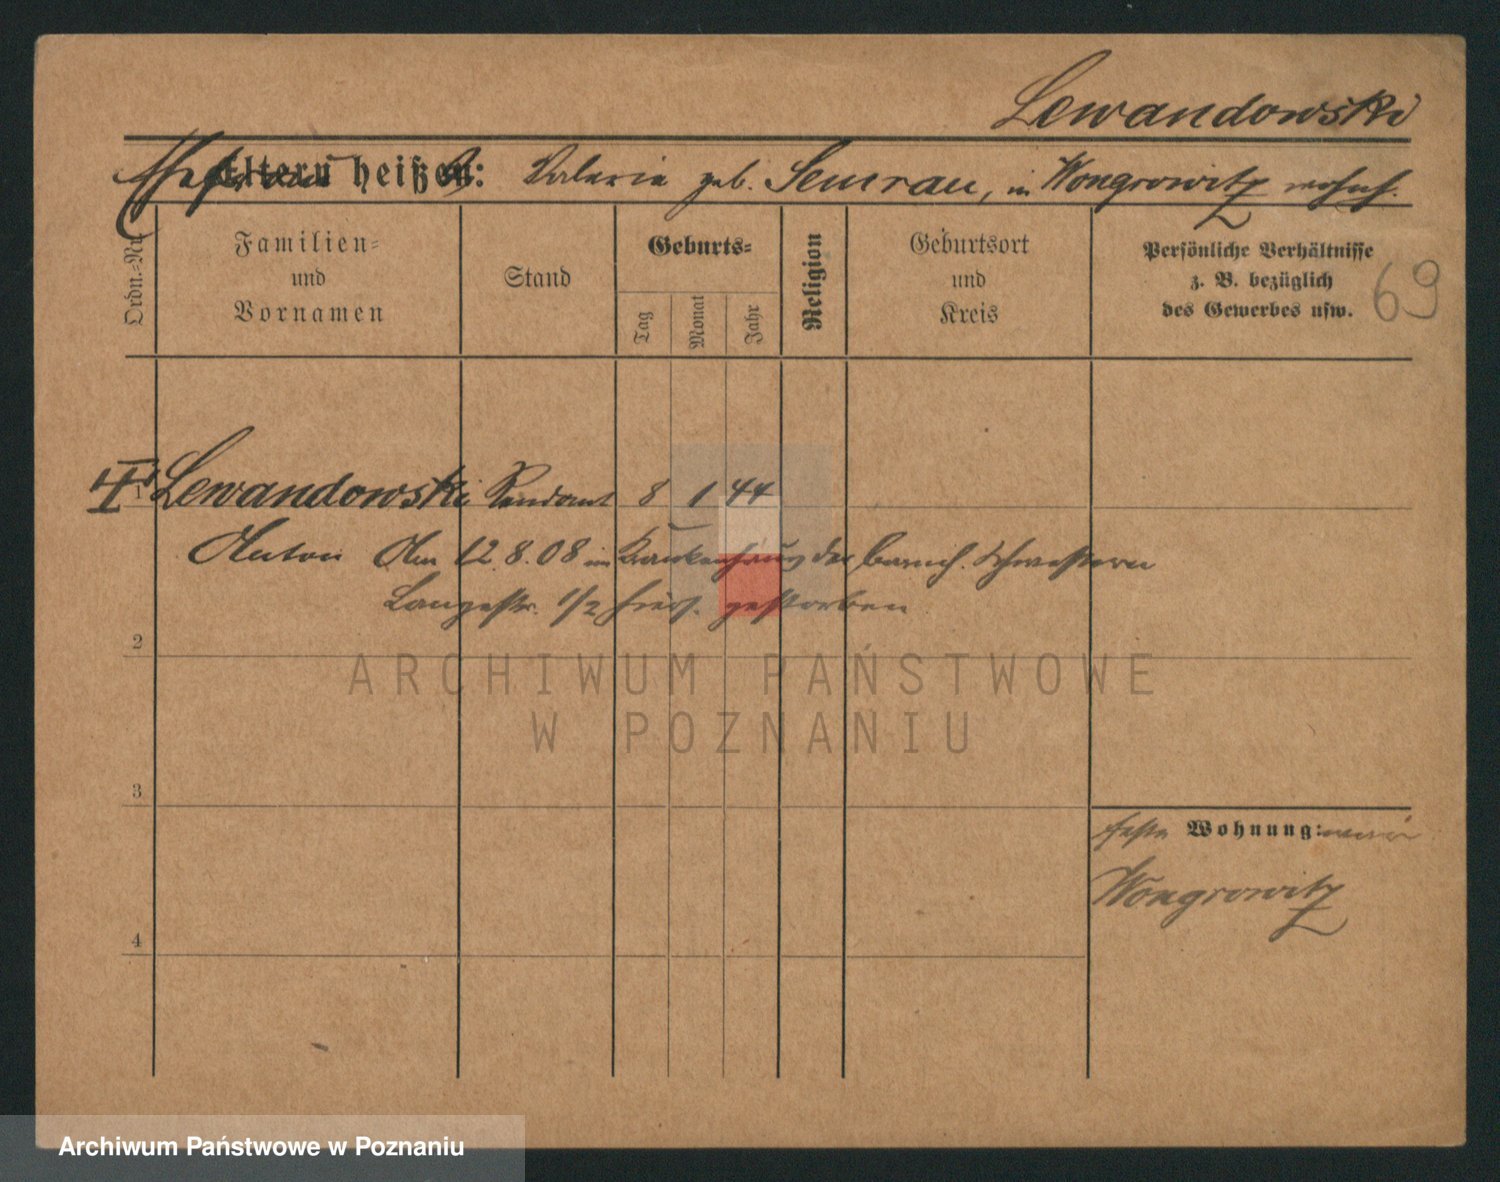 Lewandowski
Eltern heißen: Valeria geb. Semrau, in Wongrowitz wohnh.
Ordn.=Nr.
Familien=
und
Vornamen
Stand
Geburts=
Tag
Monat
Jahr
Religion
Geburtsort
und
Kreis
Persönliche Verhältnisse
z. B. bezüglich
des Gewerbes usw.
69
1 Lewandowski Rendant 8 1 44
Anton Am 12.8.08 im Krankenhaus der barmh. Schwestern
Langestr. 1/2 hiers. gestorben
2
ARCHIWUM PAŃSTWOWE
W POZNANIU
3
feste Wohnung:
Wongrowitz
4
Archiwum Państwowe w Poznaniu